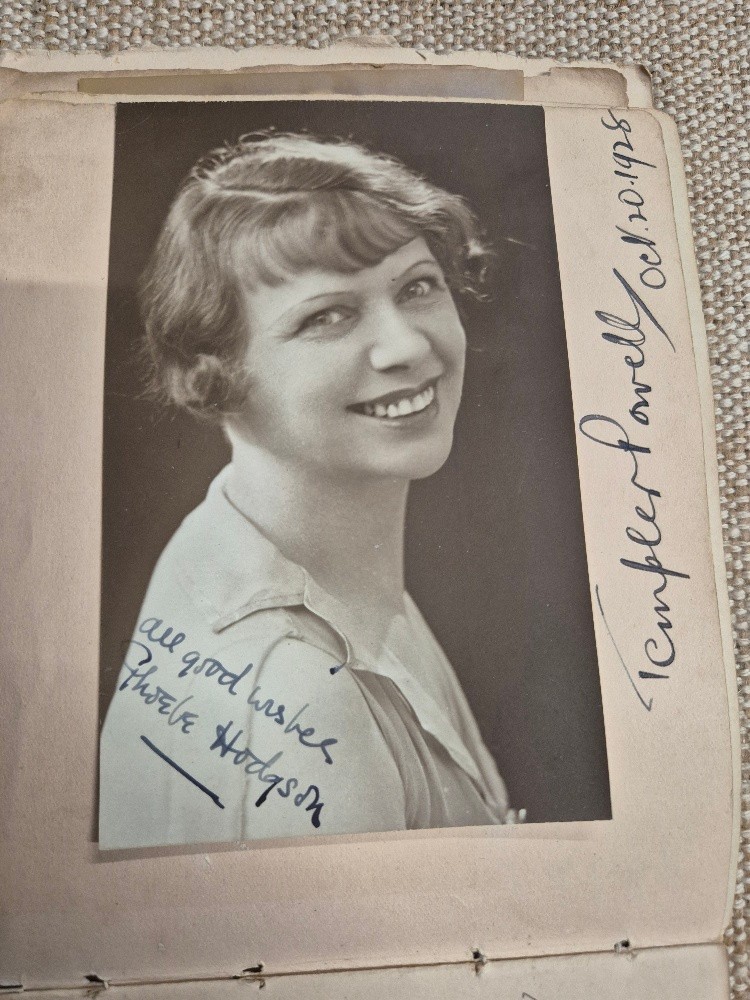 all good wishes
Phoebe Hodgson
Templer Powell
Oct. 20. 1928